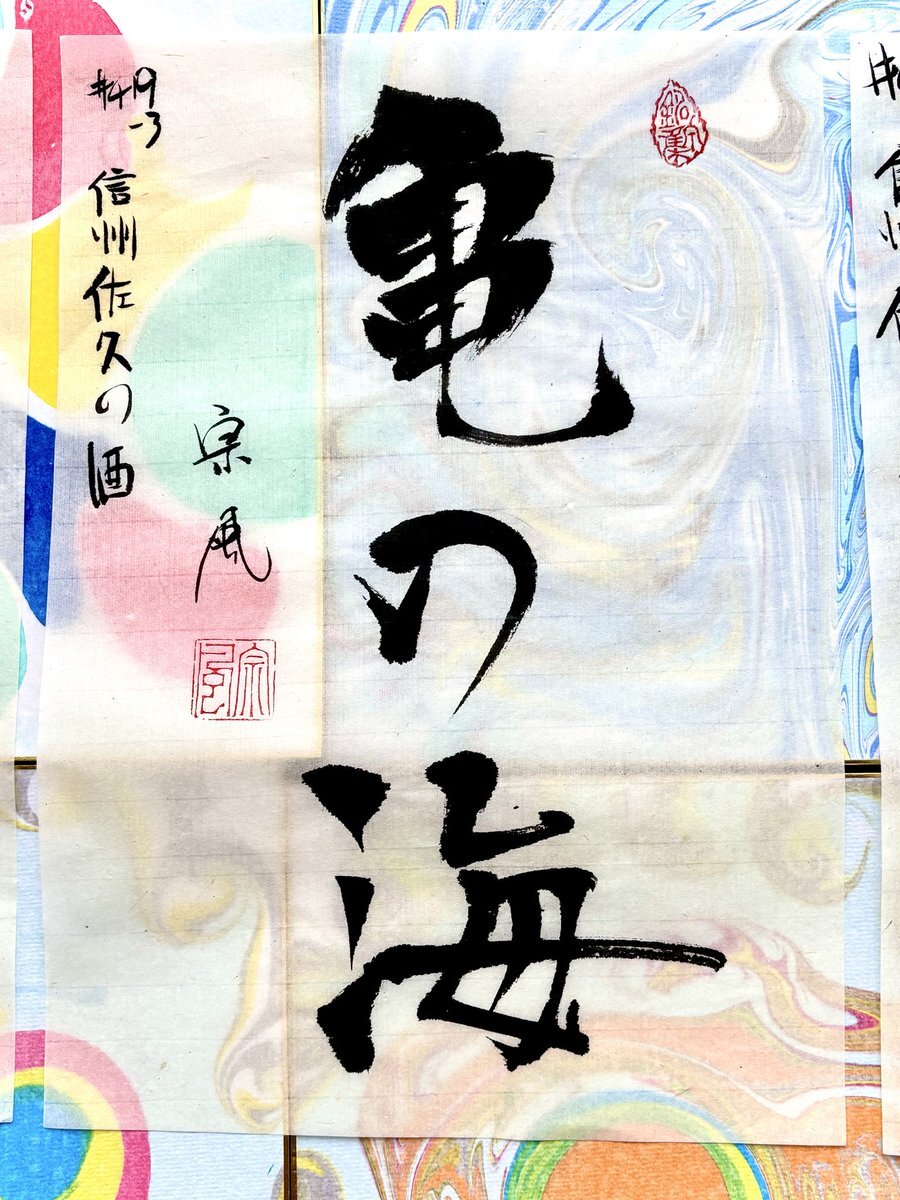 亀の海
#49
-3
信州佐久の酒
宗風